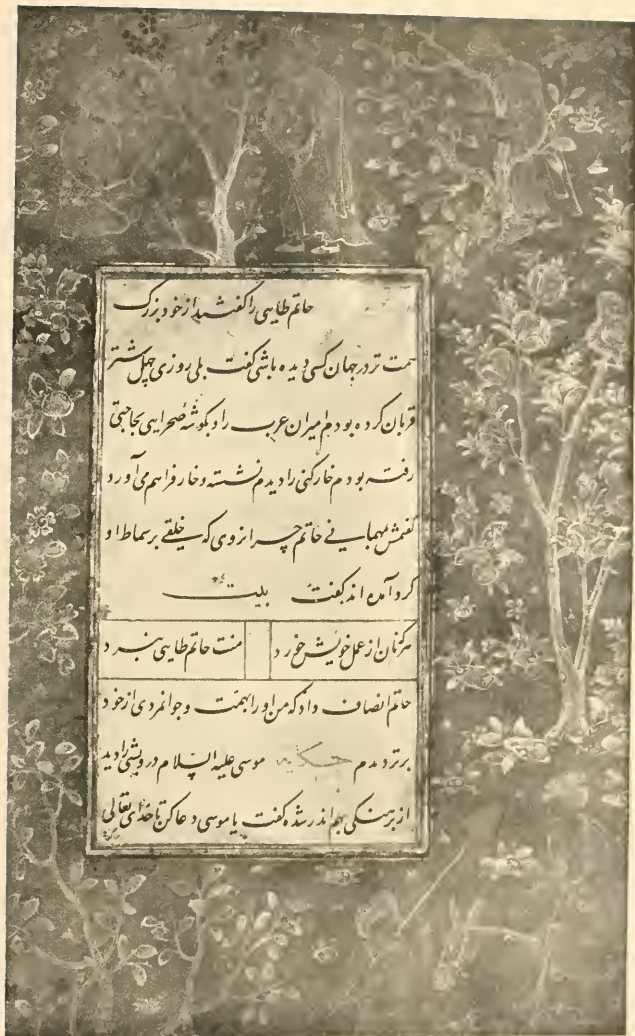 حاتم طایی را گفتند از خود بزرگ
همت تر در جهان کسی دیده باشی گفت بلی روزی چهل شتر
قربان کرده بودم امیران عرب را و بگوشه صحرایی بحاجتی
رفته بودم خارکنی را دیدم نشسته و خار فراهم می آورد
گفتمش بمهمانی حاتم چرا نروی که خلقی بر سماط او
گرد آمده اند گفت بیت
هر که نان از عمل خویش خورد منت حاتم طایی نبرد
حاتم انصاف داد که من او را بهمت و جوانمردی از خود
برتر دیدم حکایت موسی علیه السلام درویشی را دید
از برهنگی بهم اندر شده گفت یا موسی دعا کن تا خدای تعالی